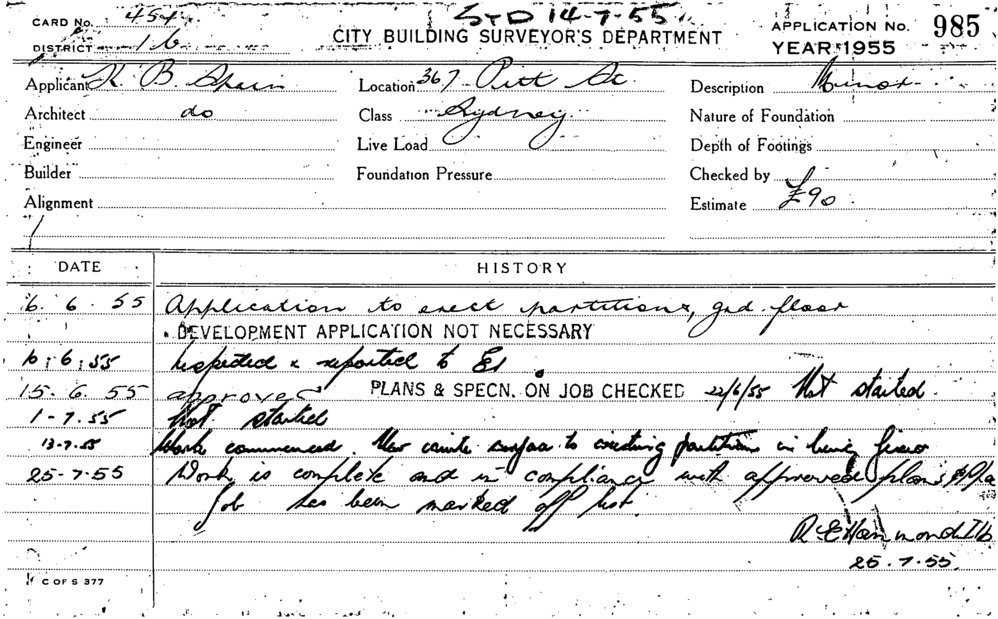 STD 14-7-55
CARD No. 454
CITY BUILDING SURVEYOR'S DEPARTMENT
APPLICATION No. 985
DISTRICT 16
YEAR 1955
Applicant K. B. Location 367 Pitt St. Description Minor
Architect do Class Sydney Nature of Foundation
Engineer Live Load Depth of Footings
Builder Foundation Pressure Checked by
Alignment Estimate £90
DATE HISTORY
6. 6. 55 Application to erect partitions, grd. floor
DEVELOPMENT APPLICATION NOT NECESSARY
10.6.55 Inspected & reported to
15. 6. 55 approved PLANS & SPECN. ON JOB CHECKED 22/6/55 Not started
1-7.55 Not started
13-7.55 Work commenced. to existing partition is being fixed
25-7-55 Work is complete and in compliance with approved plans
Job has been marked off list.
R E Hammond 
25.7.55.
C OF S 377